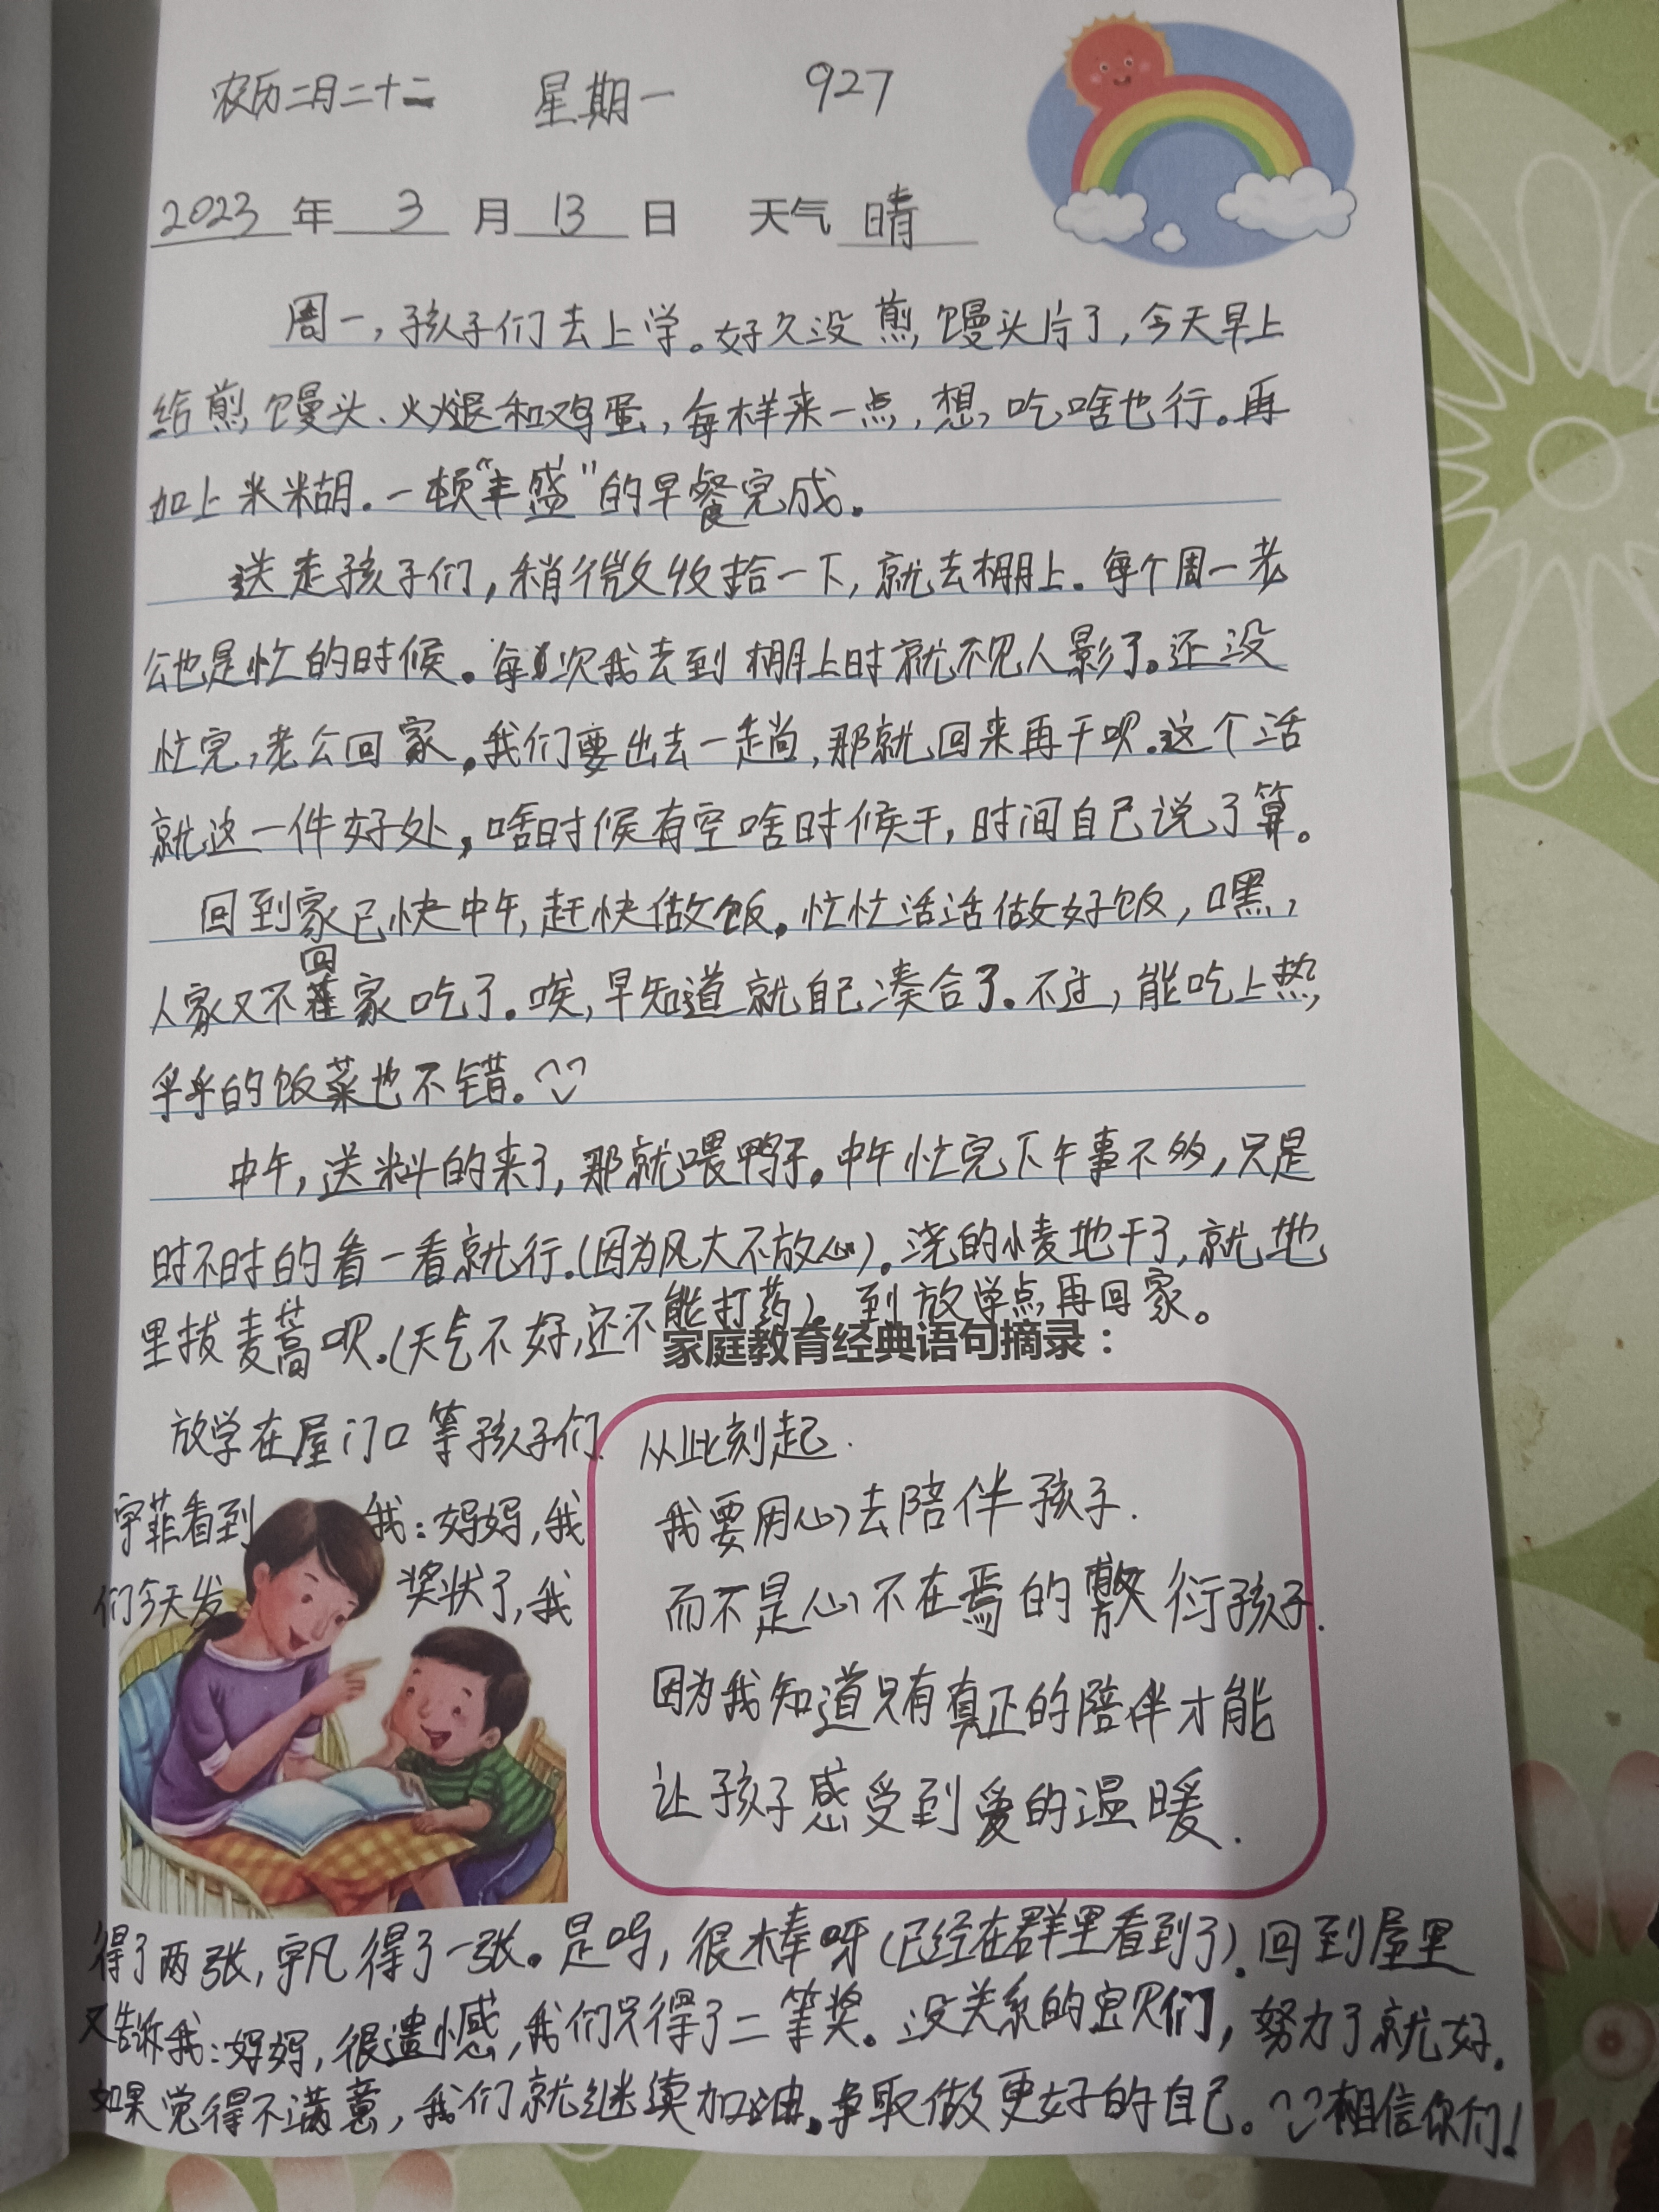 农历二月二十二 星期一 927
2023年 3 月 13 日 天气 晴
周一，孩子们去上学。好久没煎馒头片了，今天早上
给煎馒头、火腿和鸡蛋，每样来一点，想吃啥也行。再
加上米糊。一顿“丰盛”的早餐完成。
送走孩子们，稍微收拾一下，就去棚上。每个周一老
公也是忙的时候。每次我去到棚上时就不见人影了。还没
忙完，老公回家。我们要出去一趟，那就回来再干呗。这个活
就这一件好处，啥时候有空啥时候干，时间自己说了算。
回到家已快中午，赶快做饭。忙忙活活做好饭，嘿，
人家又不回家吃了。唉，早知道就自己凑合了。不过，能吃上热
乎乎的饭菜也不错。
中午，送料的来了，那就喂鸭子。中午忙完下午事不多，只是
时不时的看一看就行。(因为风大不放心)。浇的小麦地干了，就地
里拔麦蒿呗。(天气不好，还不能打药)。到放学点再回家。
家庭教育经典语句摘录：
放学在屋门口等孩子们.
宇菲看到我：妈妈，我
们今天发奖状了，我
从此刻起.
我要用心去陪伴孩子.
而不是心不在焉的敷衍孩子.
因为我知道只有真正的陪伴才能
让孩子感受到爱的温暖.
得了两张，宇凡得了一张。是吗，很棒呀(已经在群里看到了).回到屋里
又告诉我：妈妈，很遗憾，我们只得了二等奖。没关系的宝贝们，努力了就好.
如果觉得不满意，我们就继续加油。争取做更好的自己。相信你们！